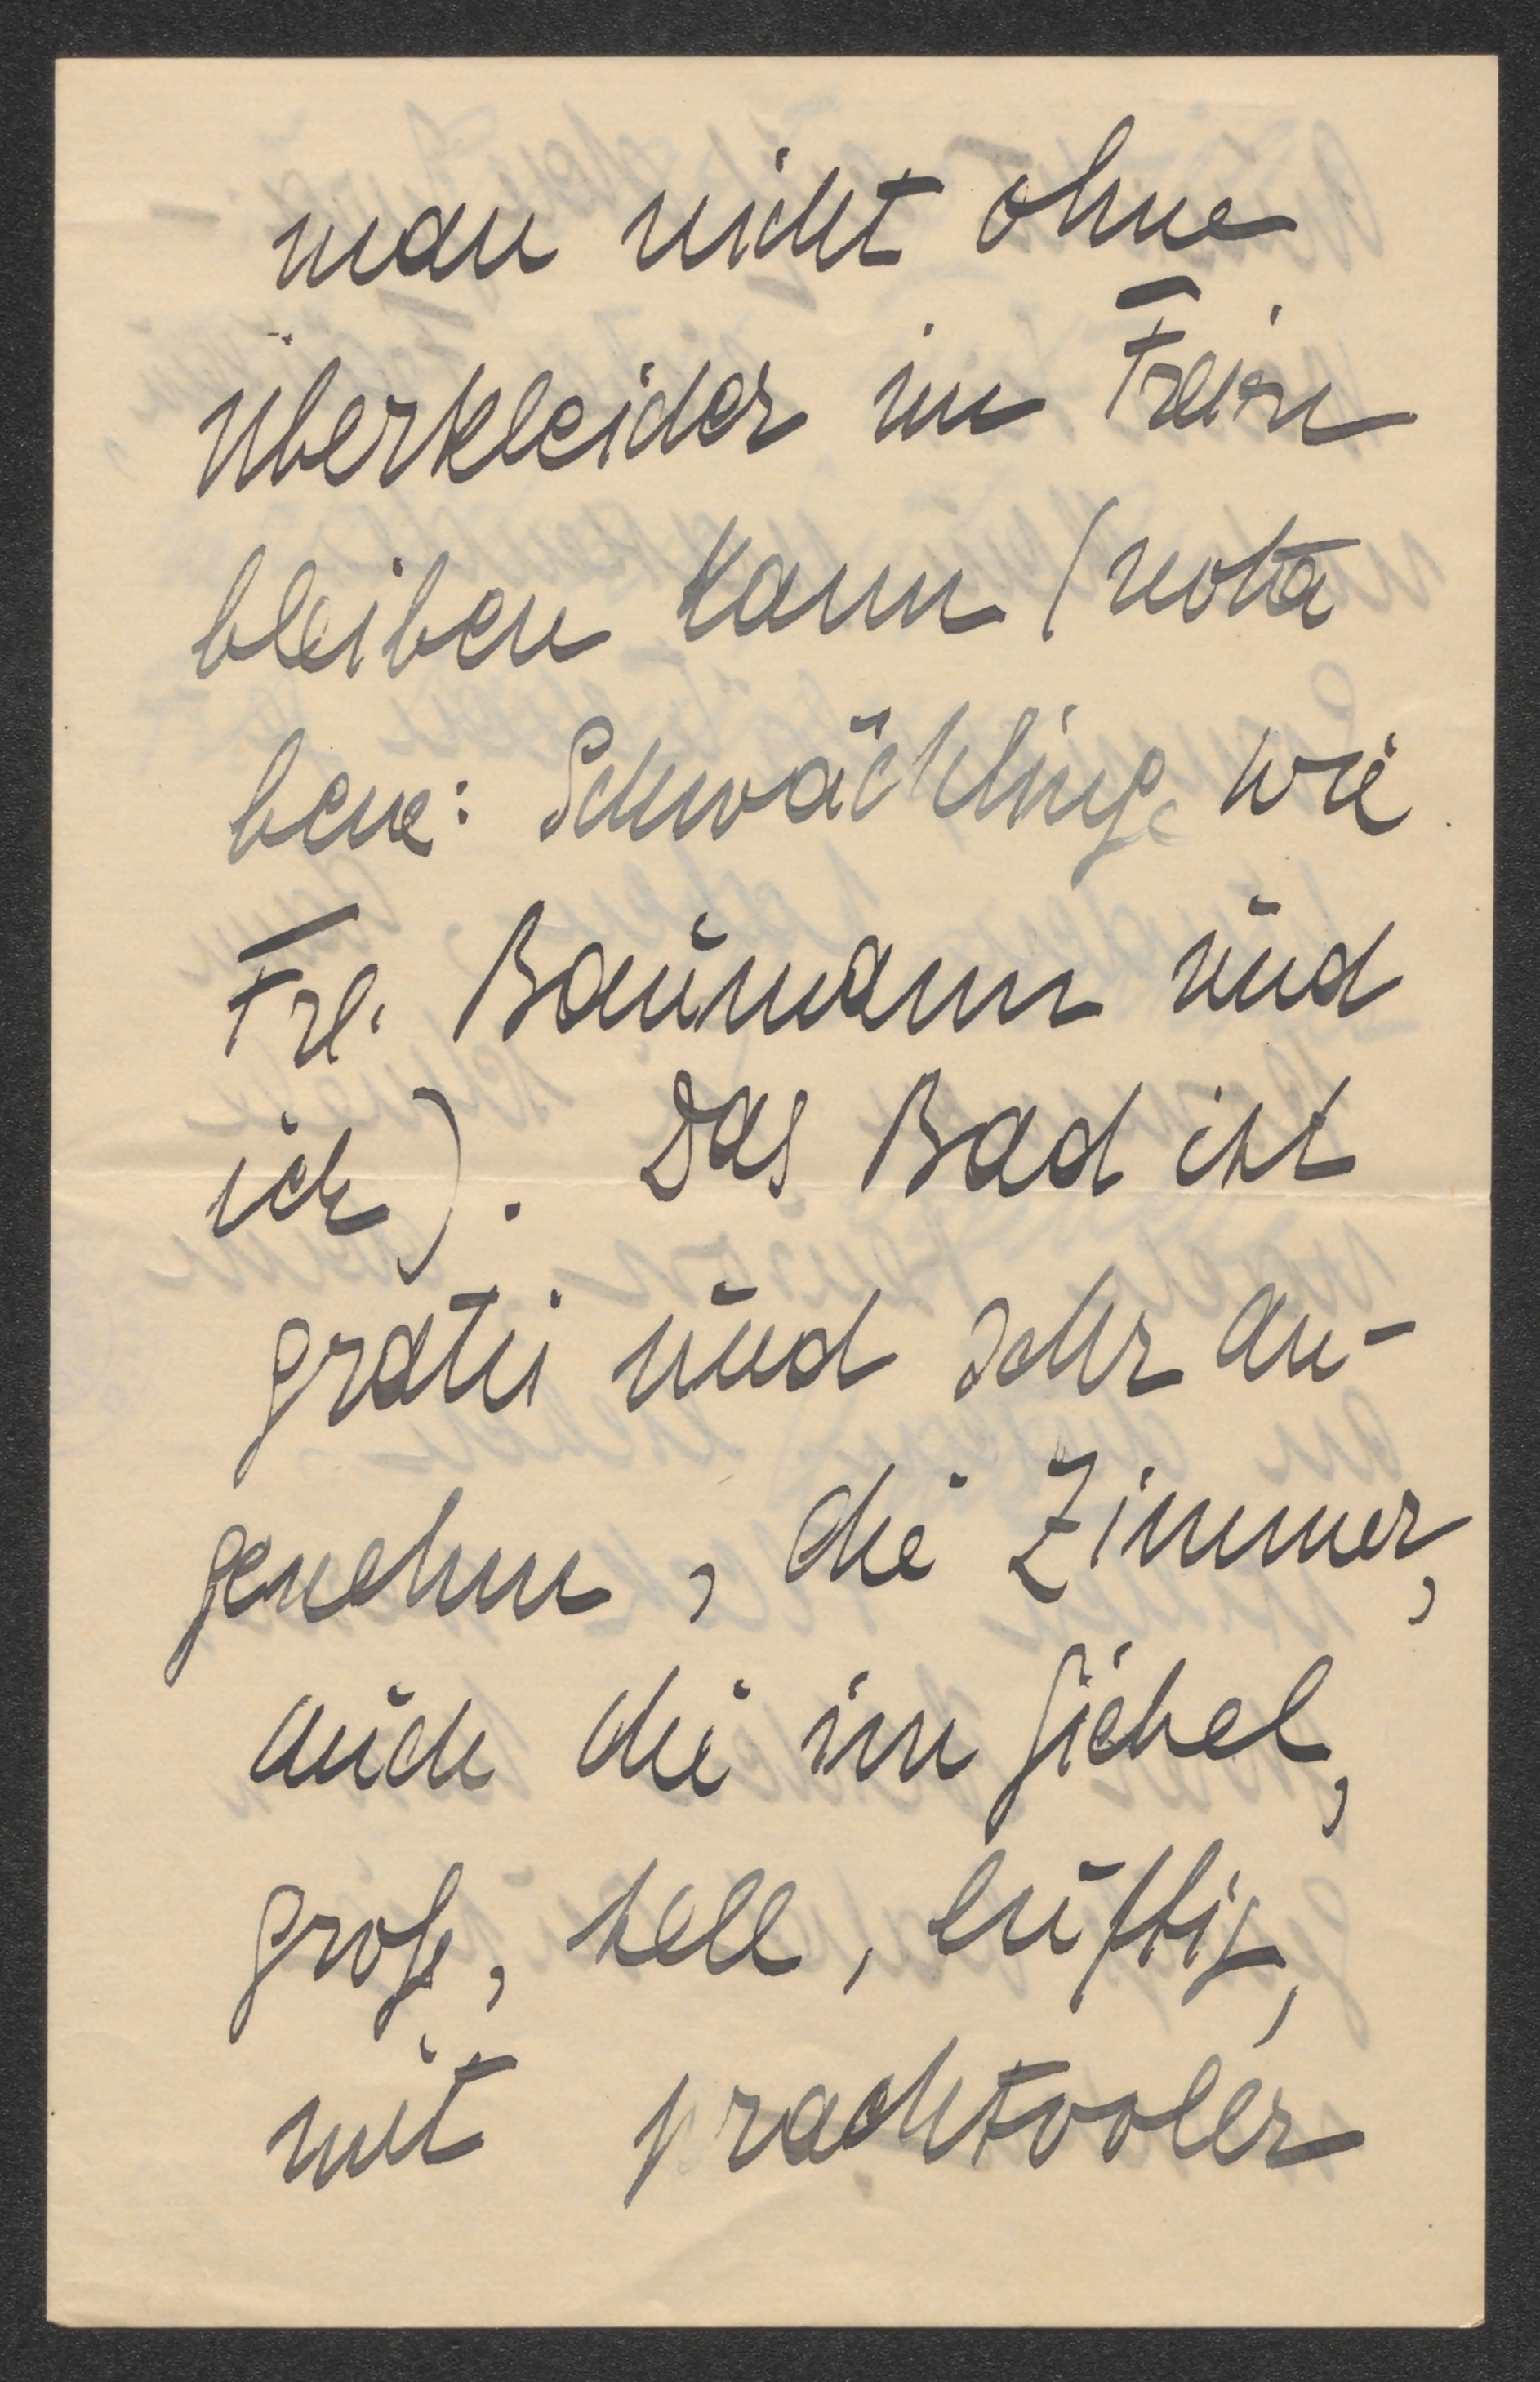 man nicht ohne
Überkleider im Freien
bleiben kann (nota
bene: Schwächlinge wie
Frl. Baumann und
ich). Das Bad ist
gratis und sehr an-
genehm, die Zimmer,
auch die im Giebel,
groß, hell, luftig,
mit prachtvoller